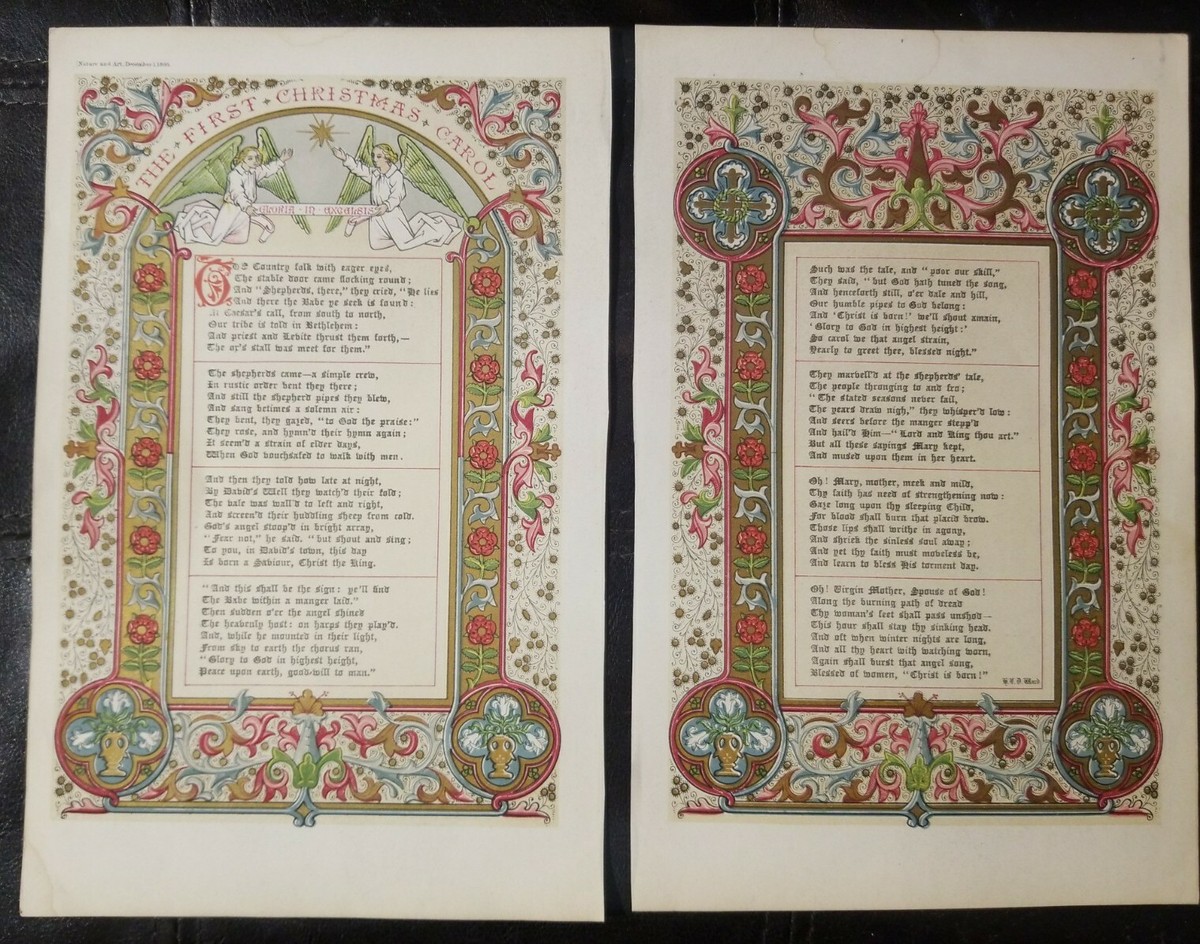 Nature and Art, December 1, 1866.
THE FIRST CHRISTMAS CAROL
GLORIA · IN · EXCELSIS
The Country folk with eager eyes,
The stable door came flocking round;
And "Shepherds, there," they cried, "He lies
And there the Babe ye seek is found:
At Caesar's call, from south to north,
Our tribe is told in Bethlehem:
And priest and Levite thrust them forth,—
The ox's stall was meet for them."
The shepherds came—a simple crew,
In rustic order bent they there;
And still the shepherd pipes they blew,
And sang betimes a solemn air:
They bent, they gazed, "to God the praise:"
They rose, and hymn'd their hymn again;
It seem'd a strain of elder days,
When God vouchsafed to walk with men.
And then they told how late at night,
By David's Well they watch'd their fold;
The vale was wall'd to left and right,
And screen'd their huddling sheep from cold.
God's angel stoop'd in bright array,
"Fear not," he said, "but shout and sing;
To you, in David's town, this day
Is born a Saviour, Christ the King.
"And this shall be the sign: ye'll find
The Babe within a manger laid."
Then sudden o'er the angel shined
The heavenly host: on harps they play'd.
And, while he mounted in their light,
From sky to earth the chorus ran,
"Glory to God in highest height,
Peace upon earth, good-will to man."
Such was the tale, and "poor our skill,"
They said, "but God hath tuned the song,
And henceforth still, o'er dale and hill,
Our humble pipes to God belong:
And 'Christ is born!' we'll shout amain,
'Glory to God in highest height:'
So carol we that angel strain,
Yearly to greet thee, blessed night."
They marvell'd at the shepherds' tale,
The people thronging to and fro;
"The stated seasons never fail,
The years draw nigh," they whisper'd low:
And seers before the manger stepp'd
And hail'd Him—"Lord and King thou art."
But all these sayings Mary kept,
And mused upon them in her heart.
Oh! Mary, mother, meek and mild,
Thy faith has need of strengthening now:
Gaze long upon thy sleeping Child,
For blood shall burn that placid brow.
Those lips shall writhe in agony,
And shriek the sinless soul away;
And yet thy faith must moveless be,
And learn to bless His torment day.
Oh! Virgin Mother, Spouse of God!
Along the burning path of dread
Thy woman's feet shall pass unshod—
This hour shall stay thy sinking head.
And oft when winter nights are long,
And all thy heart with watching worn,
Again shall burst that angel song,
Blessed of women, "Christ is born!"